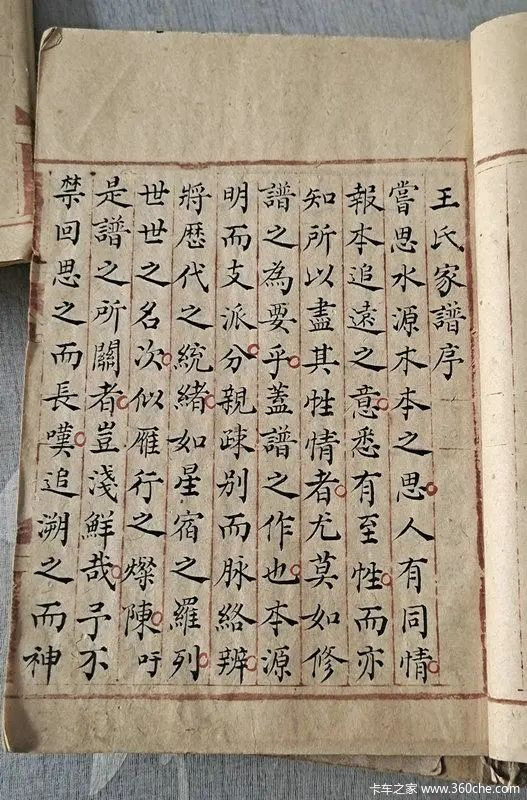 王氏家譜序
嘗思水源木本之思人有同情
報本追遠之意悉有至性而亦
知所以盡其性情者尤莫如修
譜之為要乎蓋譜之作也本源
明而支派分親疎別而脉絡辨
將歷代之統緒如星宿之羅列
世世之名次似雁行之燦陳吁
是譜之所關者豈淺鮮哉予不
禁回思之而長嘆追溯之而神
卡车之家 www.360che.com